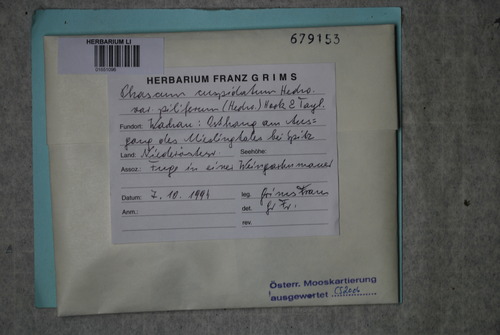 HERBARIUM LI
679153
HERBARIUM FRANZ GRIMS
Phascum cuspidatum Hedw.
var. piliferum (Hedw.) Hook & Tayl.
Fundort: Wachau: Osthang am Aus-
gang des Mieslingtales bei Spitz
Land: Niederösterr. Seehöhe:
Assoz.: Fuge in einer Weingartenmauer
Datum: 7. 10. 1994 leg. Grims Franz
Anm.: det. Gr Fr.
rev.
Österr. Mooskartierung
ausgewertet